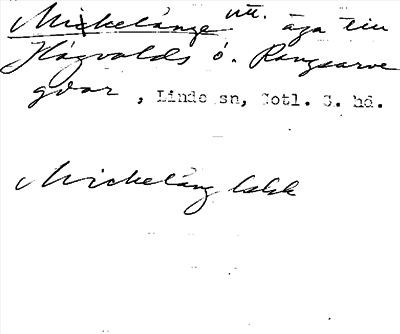 Mickelänge vtt. äga till
Hägvalds o. Rangsarve
gdar, Linde sn, Gotl. S. hd.
Mickeläng